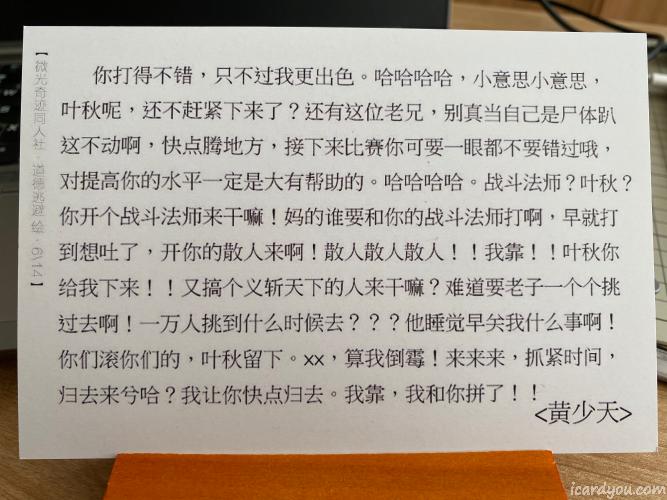 【微光奇迹同人社·道德逃避 绘·6\14】
你打得不错，只不过我更出色。哈哈哈哈，小意思小意思，
叶秋呢，还不赶紧下来了？还有这位老兄，别真当自己是尸体趴
这不动啊，快点腾地方，接下来比赛你可要一眼都不要错过哦，
对提高你的水平一定是大有帮助的。哈哈哈哈。战斗法师？叶秋？
你开个战斗法师来干嘛！妈的谁要和你的战斗法师打啊，早就打
到想吐了，开你的散人来啊！散人散人散人！！我靠！！叶秋你
给我下来！！又搞个义斩天下的人来干嘛？难道要老子一个个挑
过去啊！一万人挑到什么时候去？？？他睡觉早关我什么事啊！
你们滚你们的，叶秋留下。xx，算我倒霉！来来来，抓紧时间，
归去来兮哈？我让你快点归去。我靠，我和你拼了！！
<黄少天>
icardyou.com